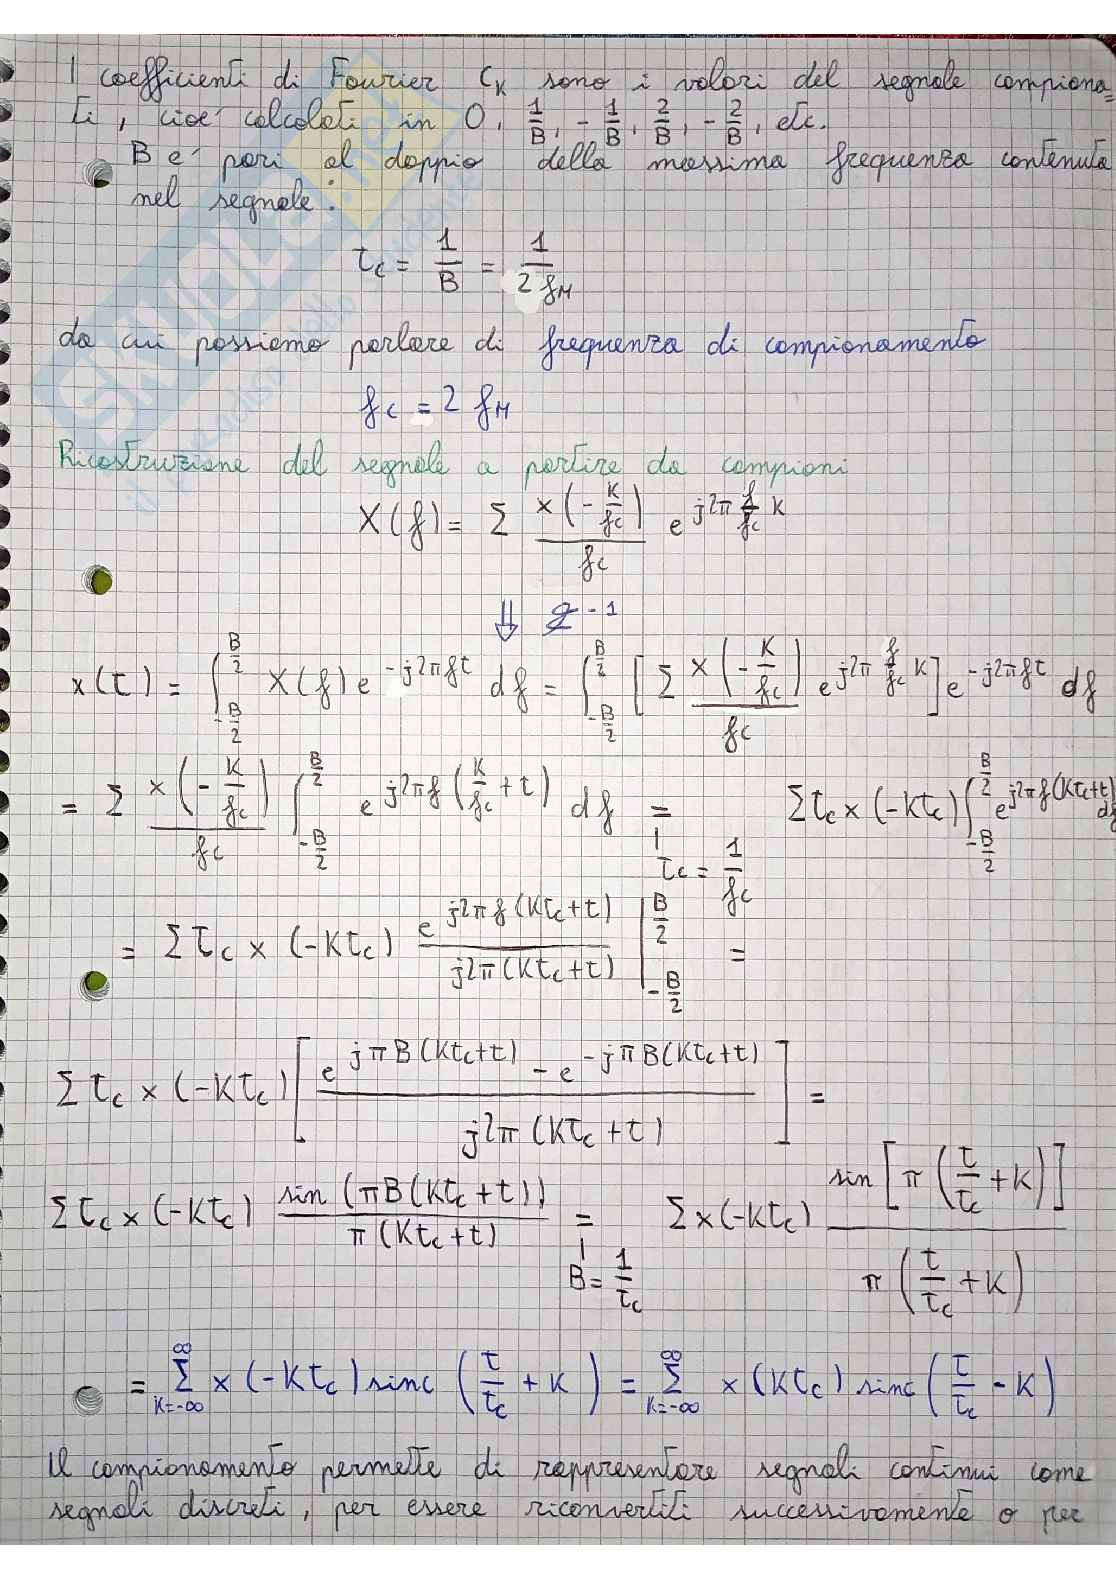 I coefficienti di Fourier Cₖ sono i valori del segnale campiona=
ti, cioe' calcolati in 0, 1/B, -1/B, 2/B, -2/B, etc.
B e' pari al doppio della massima frequenza contenuta
nel segnale:
t_c = 1/B = 1/(2 f_M)
da cui possiamo parlare di frequenza di campionamento
f_c = 2 f_M
Ricostruzione del segnale a partire da campioni
X(f) = Σ x(-K/f_c)/f_c e^{j2π f/f_c K}
⇓ F^{-1}
x(t) = ∫_{-B/2}^{B/2} X(f) e^{-j2πft} df = ∫_{-B/2}^{B/2} [Σ x(-K/f_c)/f_c e^{j2π f/f_c K}] e^{-j2πft} df
= Σ x(-K/f_c)/f_c ∫_{-B/2}^{B/2} e^{j2πf(K/f_c + t)} df = Σ t_c x(-Kt_c) ∫_{-B/2}^{B/2} e^{j2πf(Kt_c+t)} df
t_c = 1/f_c
= Σ t_c x(-Kt_c) e^{j2πf(Kt_c+t)}/(j2π(Kt_c+t)) |_{-B/2}^{B/2} =
Σ t_c x(-Kt_c) [(e^{jπB(Kt_c+t)} - e^{-jπB(Kt_c+t)})/(j2π(Kt_c+t))] =
Σ t_c x(-Kt_c) sin(πB(Kt_c+t))/(π(Kt_c+t)) = Σ x(-Kt_c) sin[π(t/t_c + K)]/(π(t/t_c + K))
B = 1/t_c
= Σ_{K=-∞}^{∞} x(-Kt_c) sinc(t/t_c + K) = Σ_{K=-∞}^{∞} x(Kt_c) sinc(t/t_c - K)
Il campionamento permette di rappresentare segnali continui come
segnali discreti, per essere riconvertiti successivamente o per
SKUOLA.net